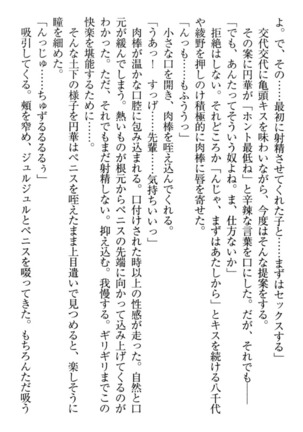 よ。で、その……最初に射精させてくれた子と……まずはセックス」
交代交代に亀頭キスを味わいながら、今度はそんな提案をする。
その案に円華が「ホント最低ね」と辛辣な言葉を口にした。だが、それでも――
「でも、あんたってそういう奴よね。ま、仕方ないか」
拒絶はしない。それどころか「んじゃ、まずはあたしから」とキスを続ける八千代
や綾野を押しのけ積極的に肉棒に唇を寄せた。
小さな口を開き、肉棒を咥え込んでくれる。
「んっも……もふううっ」
「うあっ！　すっげ……先輩……気持ちいいっ」
肉棒が温かな口腔に包み込まれる。口付けされた時以上の性感が走った。自然と口
元が緩んでしまう。熱いものが根元からペニスの先端に向かって込み上げてくるのが
わかった。ただ、それでもまだ射精しない。抑え込む。我慢する。ギリギリまでこの
快楽を堪能するために……。
そんな土下の様子を円華はペニスを咥えたまま上目遣いで見つめると、楽しそうに
瞳を細めた。
「んっじゅ……ちゅずるるるるぅ」
吸引してくる。頬を窄め、ジュルジュルとペニスを啜ってきた。もちろんただ吸う